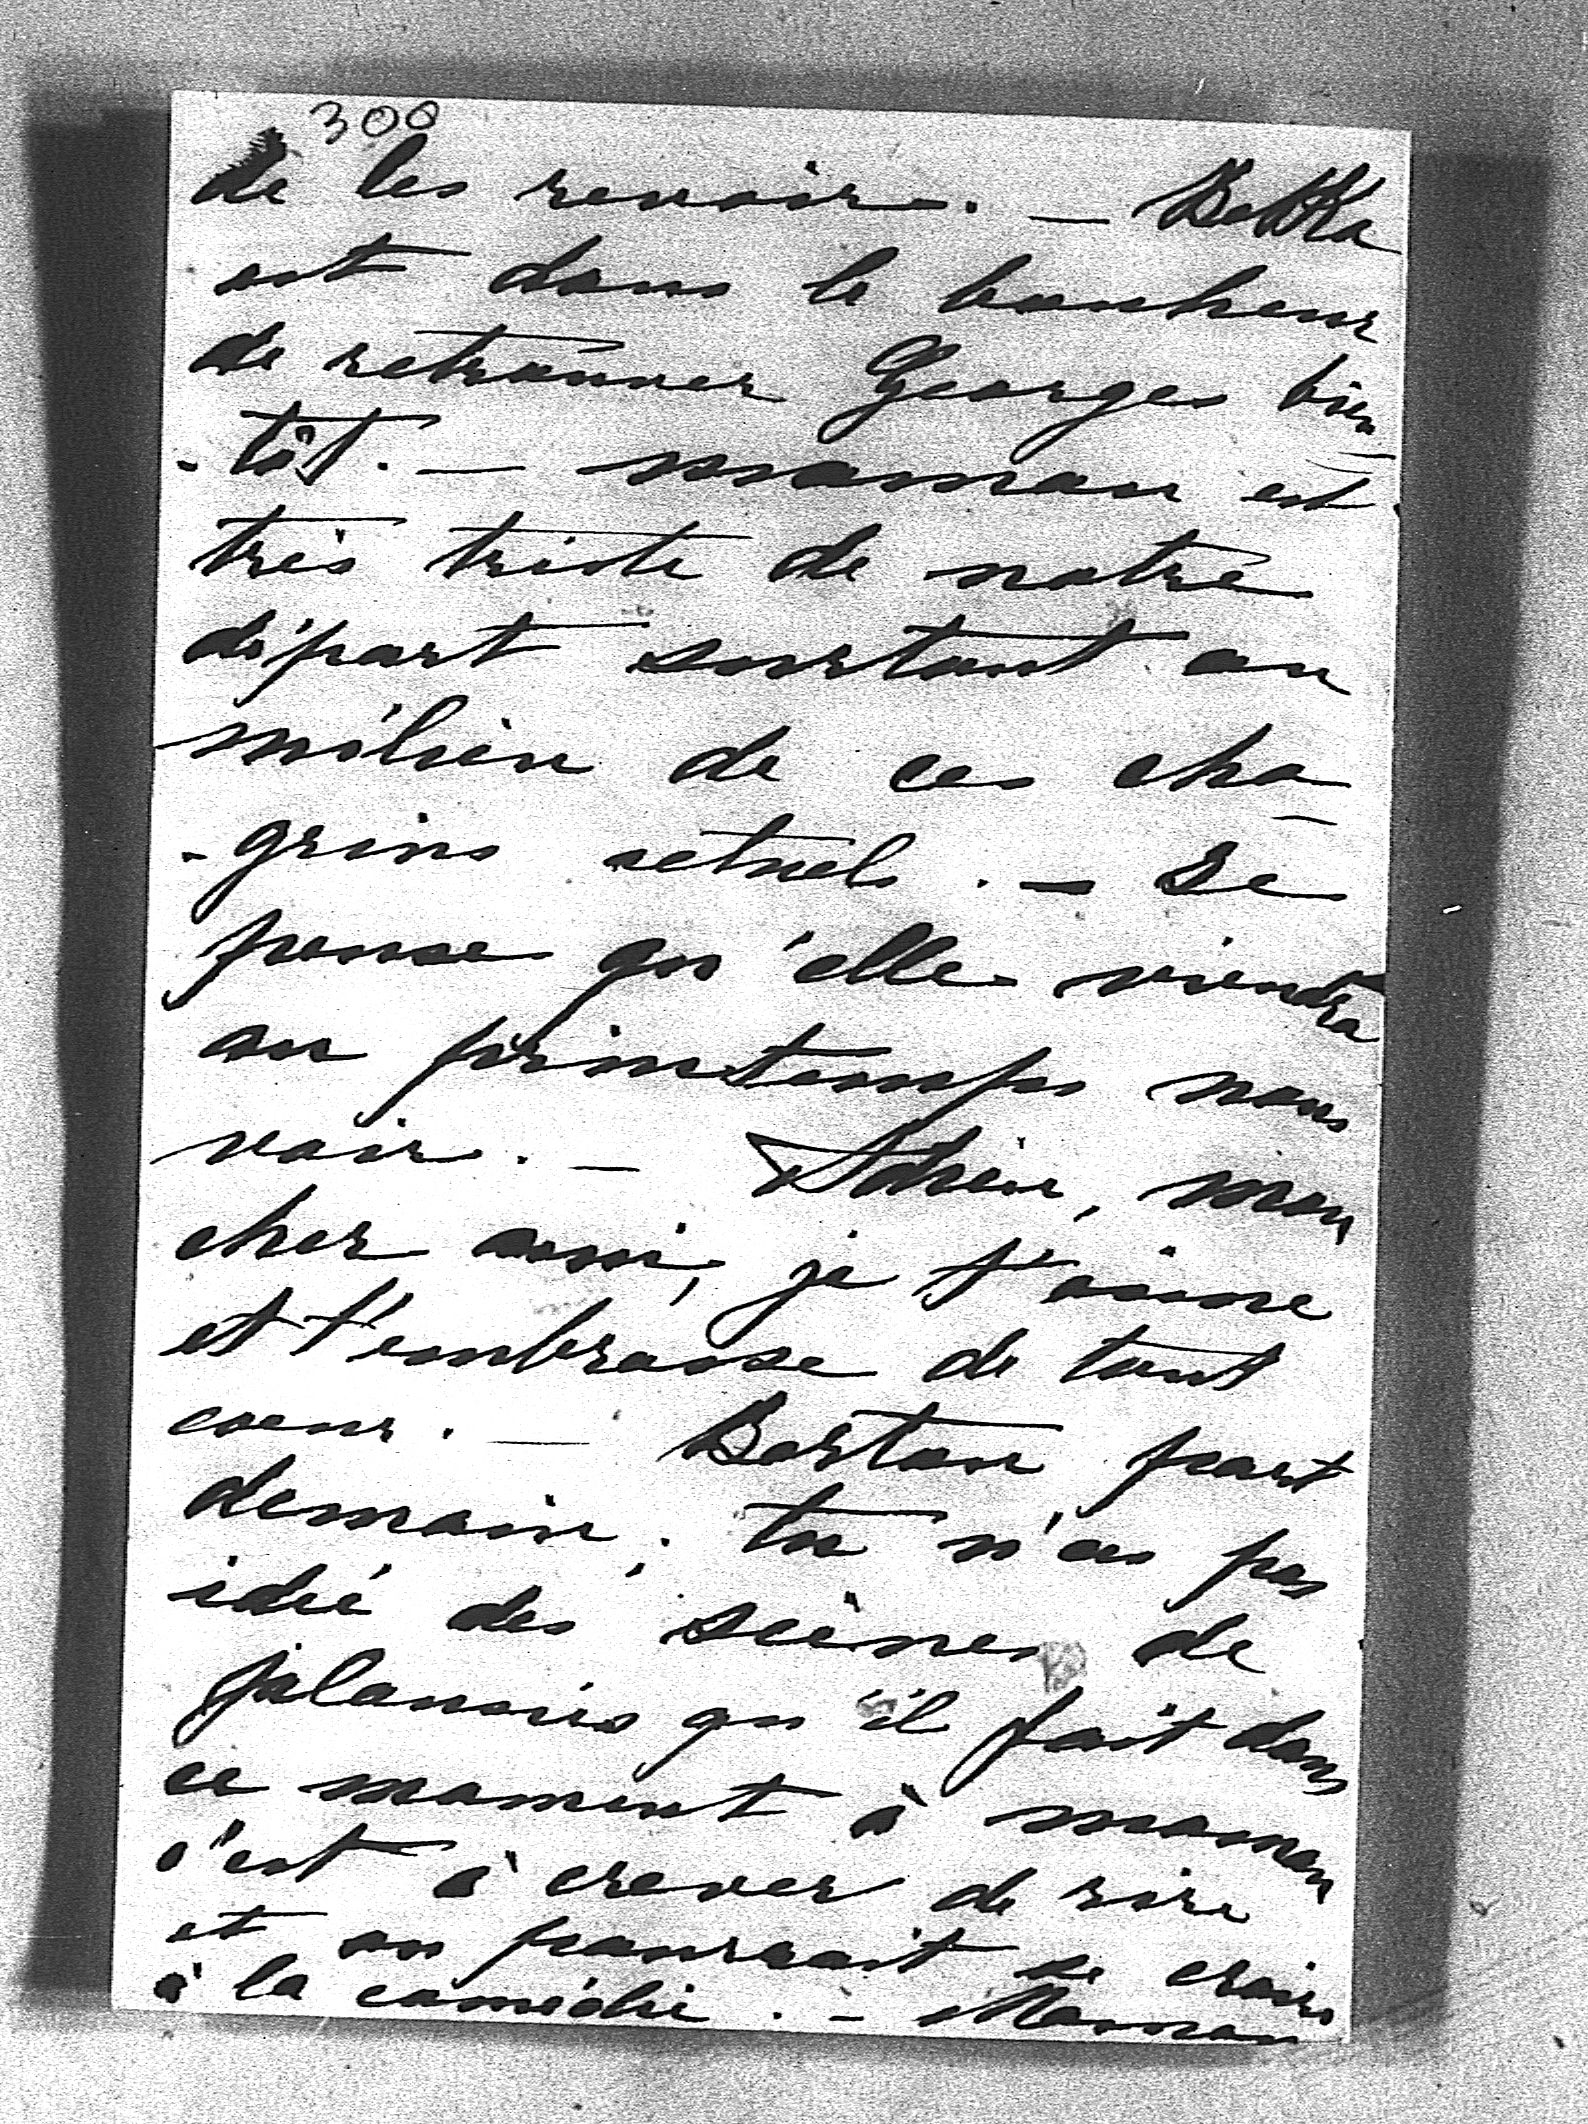 300
de les revoir. — Bekka
est dans le bonheur
de retrouver Georges bien
-tôt. — maman est
très triste de notre
départ surtout au
milieu de ces cha
-grins actuels. — Je
pense qu'elle viendra
au printemps nous
voir. — Adrien, mon
cher ami, je t'aime
et t'embrasse de tout
coeur. — part
demain, tu n'as pas
idée des scènes de
jalousies qu'il fait dans
ce moment à maman
c'est à crever de rire
et on pourrait se croire
à la comédie. — Maman